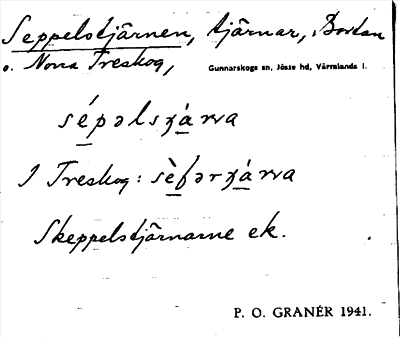 Seppelstjärnen, tjärnar, Bortan
o. Norra Treskog, Gunnarskogs sn, Jösse hd, Värmlands l.
sépəlsʒá̱rna
I Treskog: sèfərʒá̱rna
Skeppelstjärnarne ek.
P. O. GRANÉR 1941.